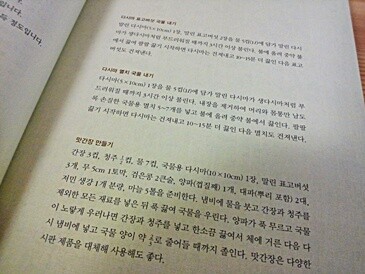 정도입니다.
다시마 표고버섯 국물 내기
말린 다시마(5×10cm) 1장, 말린 표고버섯 2장을 물 5컵(1ℓ)에 담가 말린 다시
마가 생다시마처럼 부드러워질 때까지 3시간 이상 불린다. 냄비에 옮겨 중
불에서 끓여 팔팔 끓기 시작하면 다시마는 건져내고 10~15분 더 끓인 다음 표고
버섯도 건져낸다.
다시마 멸치 국물 내기
말린 다시마(5×10cm) 1장을 물 5컵(1ℓ)에 담가 말린 다시마가 생다시마처럼 부
드러워질 때까지 3시간 이상 불린다. 내장을 제거하여 머리와 몸통만 남도
록 손질한 국물용 멸치 5~7개를 넣고 불에 올려 중약 불에서 끓인다. 팔팔
끓기 시작하면 다시마는 건져내고 10~15분 더 끓인 다음 멸치도 건져낸다.
맛간장 만들기
간장 3컵, 청주 ½컵, 물 7컵, 국물용 다시마(10×10cm) 1장, 말린 표고버섯
3개, 무 5cm 1토막, 검은콩 2큰술, 양파(껍질째) 1개, 대파(뿌리 포함) 2대,
저민 생강 1개 분량, 마늘 5톨을 준비한다. 냄비에 물을 붓고 간장과 청주를
제외한 모든 재료를 넣은 뒤 푹 끓여 국물을 우린다. 양파가 푹 무르고 국물
이 노랗게 우러나면 간장과 청주를 넣고 한소끔 끓여서 체에 거른 다음 다
시 냄비에 넣고 국물 양이 약 ⅔로 줄어들 때까지 졸인다. 맛간장은 다양한
시판 제품을 대체해 사용해도 좋다.